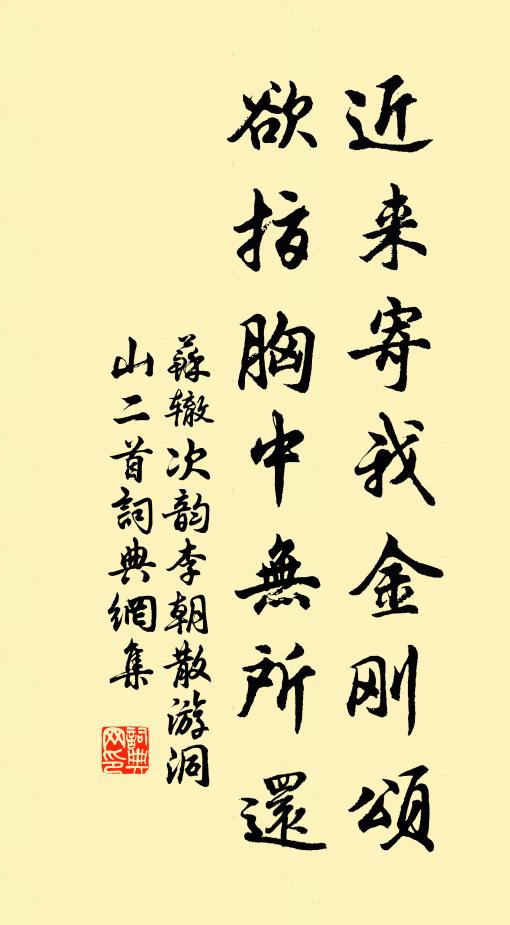 近来寄我金刚頌
欲指胸中無所還
蘇辙次韵李朝散游洞
山二首詞典網集
詞典网印